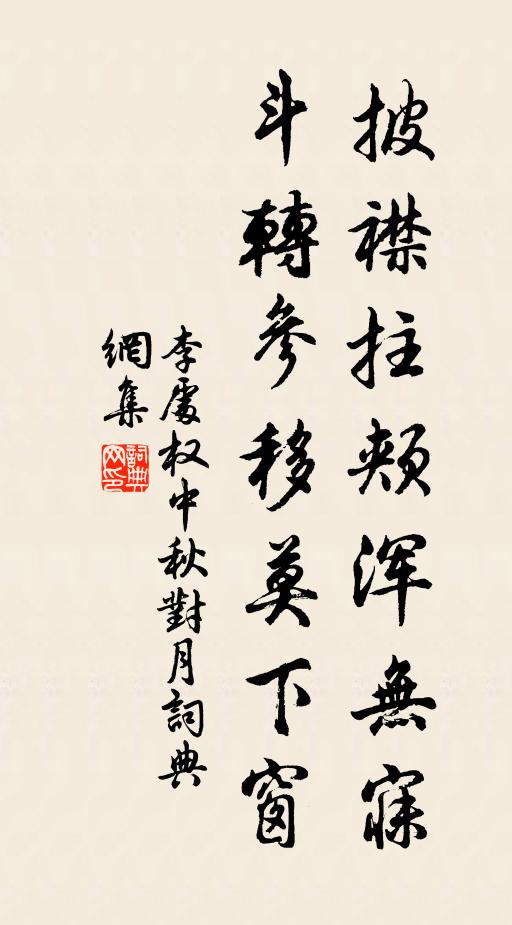 披襟拄颊浑無寐
斗轉參移莫下窗
李處权中秋對月詞典
網集
詞典
网印